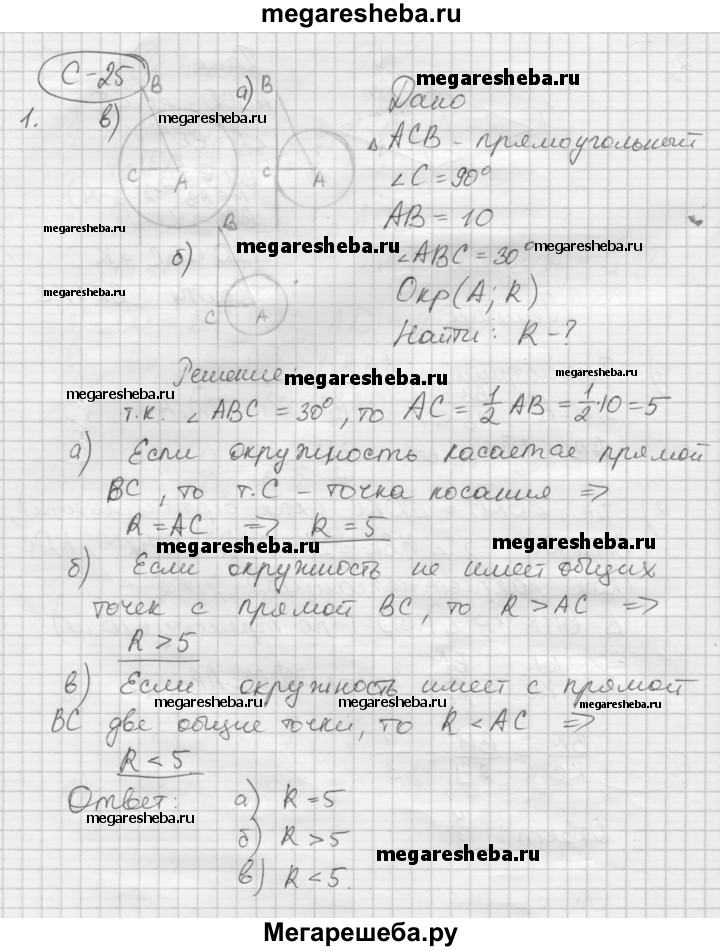 megaresheba.ru
С-25
1. в) B C A
а) B C A
б) B C A
megaresheba.ru
megaresheba.ru
megaresheba.ru
megaresheba.ru
megaresheba.ru
Дано
△ ACB - прямоугольный
∠C = 90°
AB = 10
∠ABC = 30° megaresheba.ru
Окр(A; R)
Найти: R - ?
Решение: megaresheba.ru
megaresheba.ru
megaresheba.ru
т.к. ∠ABC = 30°, то AC = 1/2 AB = 1/2·10 = 5
а) Если окружность касается прямой
BC, то т.C - точка косания ⇒
R = AC ⇒ R = 5
megaresheba.ru megaresheba.ru
б) Если окружность не имеет общих
точек с прямой BC, то R > AC ⇒
R > 5
в) Если окружность имеет с прямой
megaresheba.ru megaresheba.ru megaresheba.ru
BC две общие точки, то R < AC ⇒
R < 5
Ответ: а) R = 5
megaresheba.ru
б) R > 5
megaresheba.ru
в) R < 5.
Мегарешеба.ру